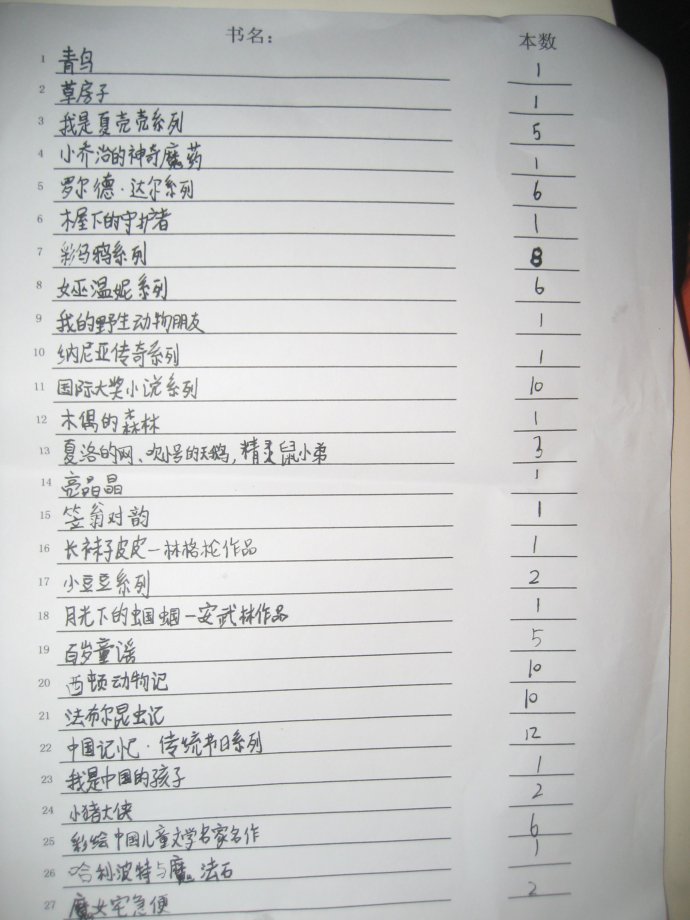 书名： 本数
1 青鸟 1
2 草房子 1
3 我是夏壳壳系列 5
4 小乔治的神奇魔药 1
5 罗尔德·达尔系列 6
6 木屋下的守护者 1
7 彩乌鸦系列 8
8 女巫温妮系列 6
9 我的野生动物朋友 1
10 纳尼亚传奇系列 1
11 国际大奖小说系列 10
12 木偶的森林 1
13 夏洛的网、吹小号的天鹅，精灵鼠小弟 3
14 亮晶晶 1
15 笠翁对韵 1
16 长袜子皮皮—林格伦作品 1
17 小豆豆系列 2
18 月光下的蝈蝈—安武林作品 1
19 百岁童谣 5
20 西顿动物记 10
21 法布尔昆虫记 10
22 中国记忆·传统节日系列 12
23 我是中国的孩子 1
24 小猪大侠 2
25 彩绘中国儿童文学名家名作 6
26 哈利波特与魔法石 1
27 魔女宅急便 2